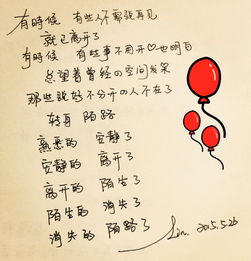 有時候 有些人不需說再見
就已离开了
有時候 有些事不用开口也明白
总望着曾经の空间发呆
那些説好不分开の人不在了
转身 陌路
熟悉的 安静了
安静的 离开了
离开的 陌生了
陌生的 消失了
消失的 陌路了
Lin. 2015.5.26